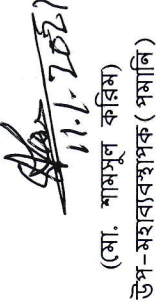 11.1.2021
(মো. শামসুল করিম)
উপ-মহাব্যবস্থাপক (পমানি)